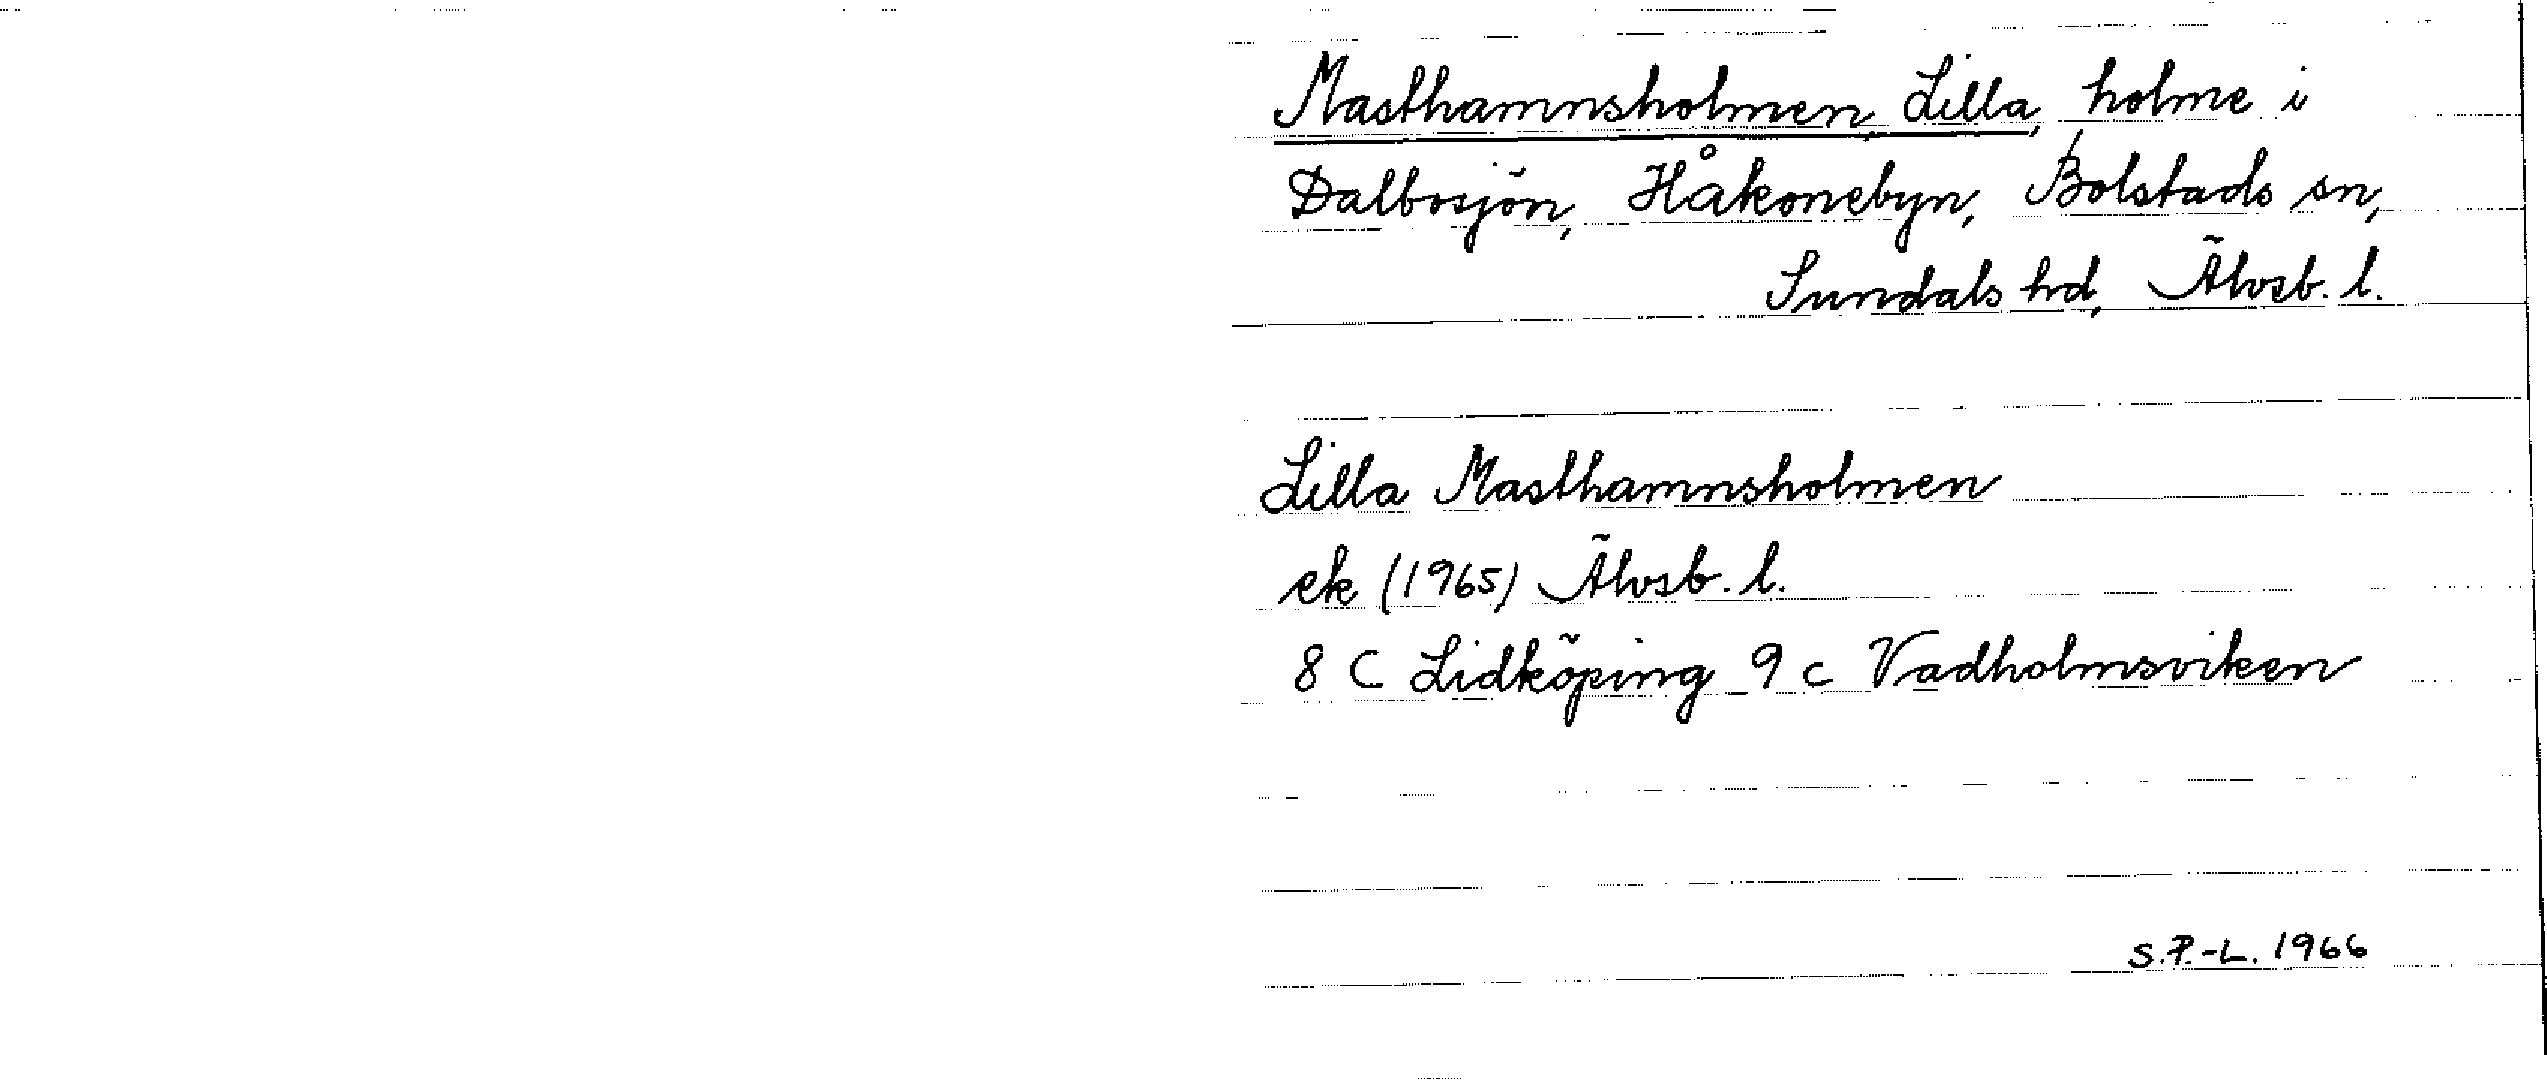 Masthamnsholmen, Lilla, holme i
Dalbosjön, Håkonebyn, Bolstads sn,
Sundals hd, Älvsb. l.
Lilla Masthamnsholmen
ek (1965) Älvsb. l.
8 C Lidköping 9 c Vadholmsviken
S.P.-L. 1966